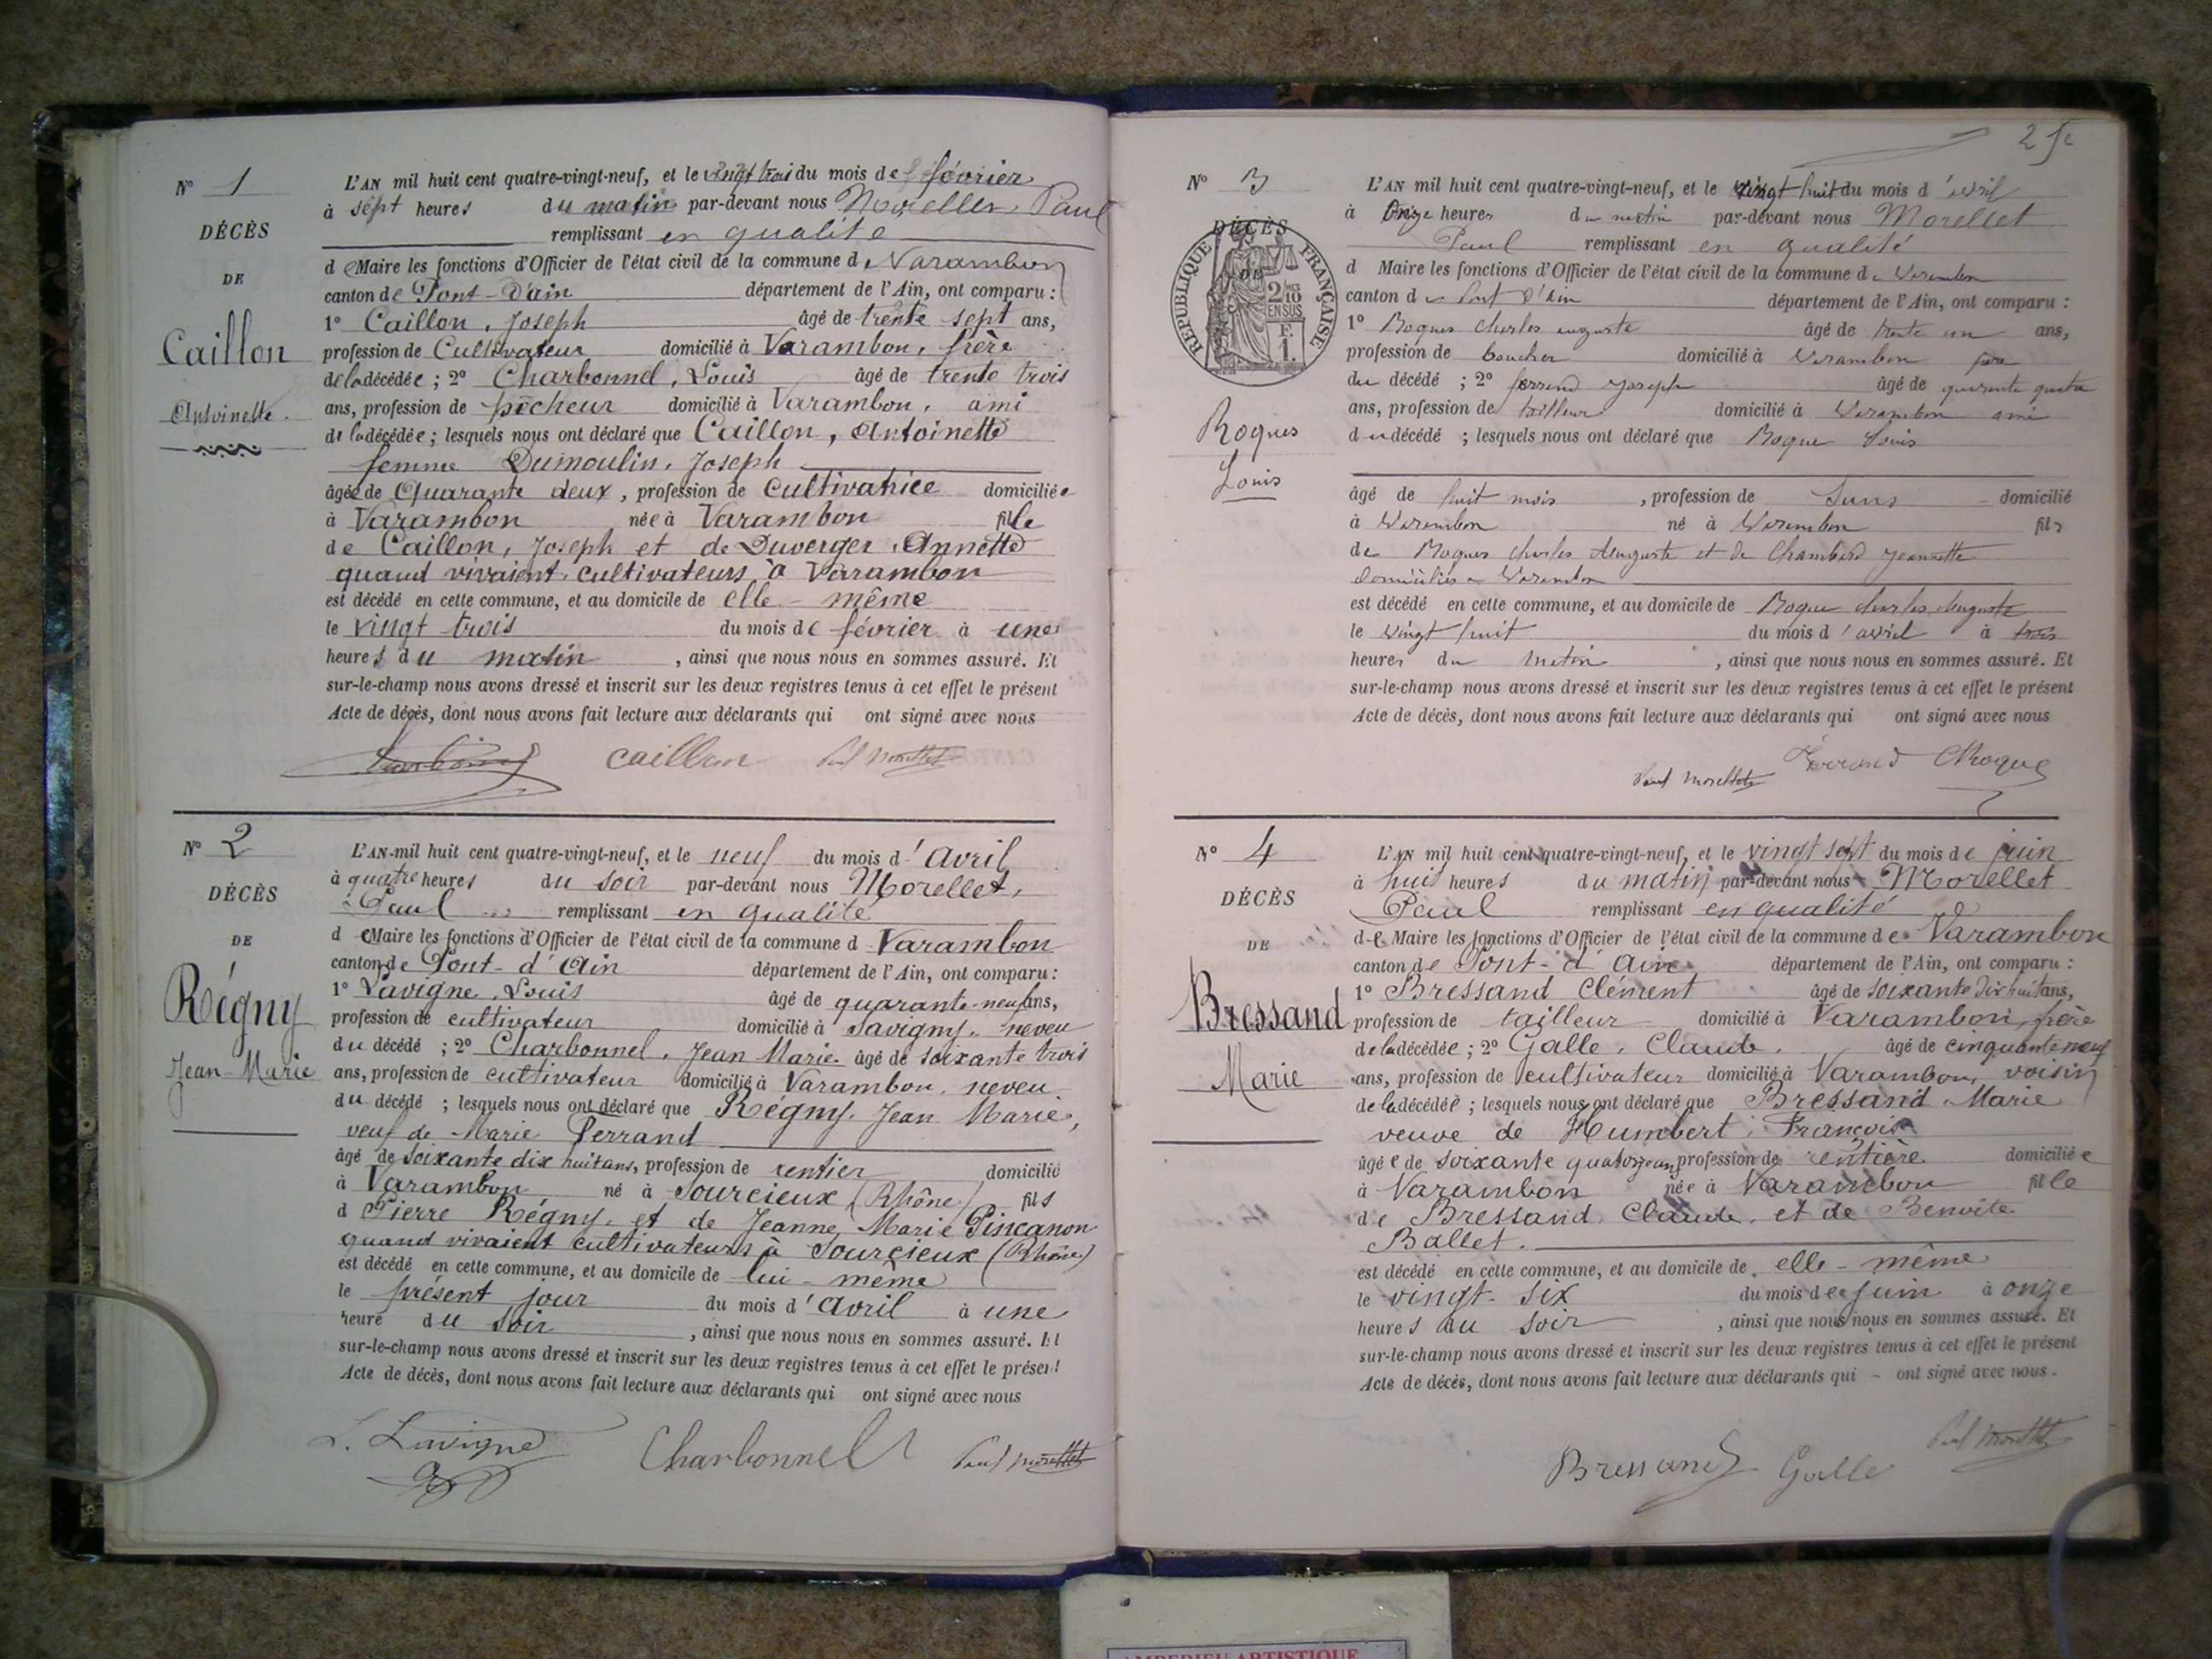 N° 1
DÉCÈS
DE
Caillon
Antoinette.
L'AN mil huit cent quatre-vingt-neuf, et le vingt trois du mois de février
à sept heures du matin par-devant nous Morellet, Paul
remplissant en qualité
de Maire les fonctions d'Officier de l'état civil de la commune d Varambon
canton de Pont-d'ain département de l'Ain, ont comparu :
1° Caillon, Joseph âgé de trente sept ans,
profession de Cultivateur domicilié à Varambon, frère
de la décédée ; 2° Charbonnel, Louis âgé de trente trois
ans, profession de pêcheur domicilié à Varambon, ami
de la décédée ; lesquels nous ont déclaré que Caillon, Antoinette
femme Dumoulin, Joseph
âgée de Quarante deux, profession de Cultivatrice domiciliée
à Varambon née à Varambon fille
de Caillon, Joseph et de Duverger Annette
quand vivaient cultivateurs à Varambon
est décédé en cette commune, et au domicile de elle-même
le vingt trois du mois de février à une
heures du matin, ainsi que nous nous en sommes assuré. Et
sur-le-champ nous avons dressé et inscrit sur les deux registres tenus à cet effet le présent
Acte de décès, dont nous avons fait lecture aux déclarants qui ont signé avec nous
Caillon Paul Morellet
N° 2
DÉCÈS
DE
Régny
Jean-Marie
L'AN mil huit cent quatre-vingt-neuf, et le neuf du mois d'Avril
à quatre heures du soir par-devant nous Morellet,
Paul remplissant en qualité
de Maire les fonctions d'Officier de l'état civil de la commune d Varambon
canton de Pont-d'Ain département de l'Ain, ont comparu :
1° Lavigne, Louis âgé de quarante-neuf ans,
profession de cultivateur domicilié à Savigny, neveu
du décédé ; 2° Charbonnel, Jean Marie âgé de soixante trois
ans, profession de cultivateur domicilié à Varambon, neveu
du décédé ; lesquels nous ont déclaré que Régny, Jean Marie,
veuf de Marie Perrand
âgé de soixante dix huit ans, profession de rentier domicilié
à Varambon né à Sourcieux (Rhône) fils
d Pierre Régny, et de Jeanne Marie Pincanon
quand vivaient cultivateurs à Sourcieux (Rhône)
est décédé en cette commune, et au domicile de lui-même
le présent jour du mois d'Avril à une
heure du soir, ainsi que nous nous en sommes assuré. Et
sur-le-champ nous avons dressé et inscrit sur les deux registres tenus à cet effet le présent
Acte de décès, dont nous avons fait lecture aux déclarants qui ont signé avec nous
L. Lavigne Charbonnel Paul Morellet
N° 3
DÉCÈS
DE
RÉPUBLIQUE FRANÇAISE
2/10 EN SUS
F.
1.
Roques
Louis
L'AN mil huit cent quatre-vingt-neuf, et le vingt huit du mois d'avril
à Onze heures du matin par-devant nous Morellet
Paul remplissant en qualité
d Maire les fonctions d'Officier de l'état civil de la commune de Varambon
canton de Pont d'Ain département de l'Ain, ont comparu :
1° Roques Charles auguste âgé de trente un ans,
profession de boucher domicilié à Varambon père
du décédé ; 2° ferrand Joseph âgé de quarante quatre
ans, profession de tailleur domicilié à Varambon ami
du décédé ; lesquels nous ont déclaré que Roque Louis
âgé de huit mois, profession de Sans domicilié
à Varambon né à Varambon fils
de Roques Charles Auguste et de Chambard Jeannette
domiciliés à Varambon
est décédé en cette commune, et au domicile de Roque Charles Auguste
le vingt huit du mois d'avril à trois
heures du matin, ainsi que nous nous en sommes assuré. Et
sur-le-champ nous avons dressé et inscrit sur les deux registres tenus à cet effet le présent
Acte de décès, dont nous avons fait lecture aux déclarants qui ont signé avec nous
Paul Morellet Ferrand CRoque
N° 4
DÉCÈS
DE
Bressand
Marie
L'AN mil huit cent quatre-vingt-neuf, et le vingt sept du mois de juin
à huit heures du matin par-devant nous Morellet
Paul remplissant en qualité
de Maire les fonctions d'Officier de l'état civil de la commune de Varambon
canton de Pont-d'Ain département de l'Ain, ont comparu :
1° Bressand Clément âgé de soixante dix huit ans,
profession de tailleur domicilié à Varambon, frère
de la décédée ; 2° Galle, Claude, âgé de cinquante neuf
ans, profession de cultivateur domicilié à Varambon, voisin
de la décédée ; lesquels nous ont déclaré que Bressand Marie
veuve de Humbert, François
âgée de soixante quatorze ans, profession de rentière domiciliée
à Varambon née à Varambon fille
de Bressand Claude, et de Benoîte
Ballet.
est décédé en cette commune, et au domicile de elle-même
le vingt-six du mois de Juin à onze
heures du soir, ainsi que nous nous en sommes assuré. Et
sur-le-champ nous avons dressé et inscrit sur les deux registres tenus à cet effet le présent
Acte de décès, dont nous avons fait lecture aux déclarants qui ont signé avec nous.
Bressand Galle Paul Morellet